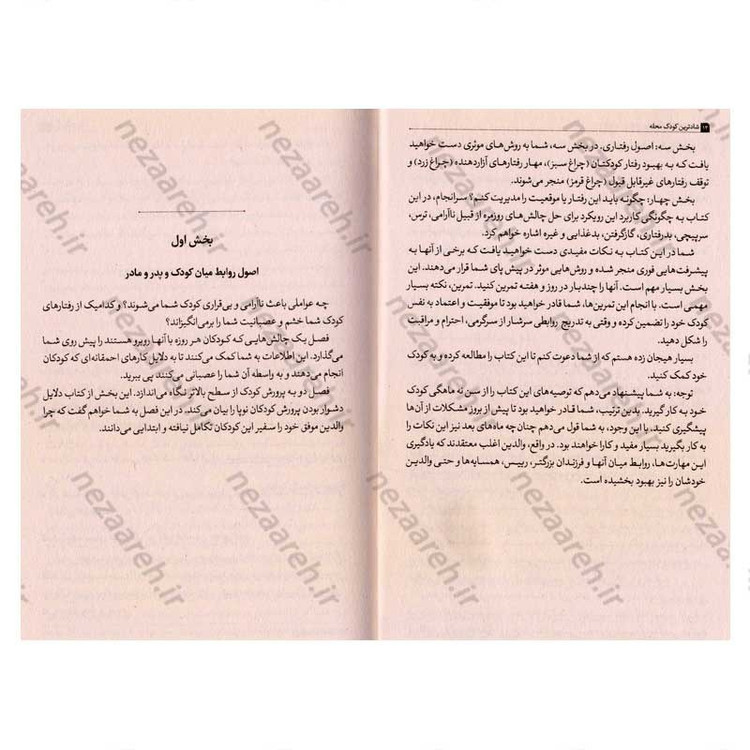 ۱۲ شادترین کودک محله
بخش سه: اصول رفتاری. در بخش سه، شما به روش‌های موثری دست خواهید
یافت کـه بـه بهبـود رفتار کودکتان (چراغ سبـز)، مهار رفتارهای آزاردهنده (چراغ زرد) و
توقف رفتارهای غیرقابل قبول (چراغ قرمز) منجر می‌شوند.
بخش چهار: چگونه باید این رفتار یا موقعیت را مدیریت کنیم؟ سرانجام، در این
کتاب به چگونگی کاربرد این رویکرد برای حل چالش‌های روزمره از قبیل ناآرامی، ترس،
سرپیچی، بدرفتاری، گازگرفتن، بدغذایی و غیره اشاره خواهم کرد.
شما در این کتاب به نکات مفیدی دست خواهید یافت که برخی از آنها به
پیشرفت‌هایی فوری منجر شده و روش‌هایی موثر در پیش پای شما قرار می‌دهند. این
بخش بسیار مهم است. آنها را چندبار در روز و هفته تمرین کنید. تمرین، نکته بسیار
مهمی است. با انجام این تمرین‌ها، شما قادر خواهید بود تا موفقیت و اعتماد به نفس
کودک خود را تضمین کرده و وقتی به تدریج روابطی سرشار از سرگرمی، احترام و مراقبت
را شکل دهید.
بسیار هیجان زده هستم که از شما دعوت کنم تا این کتاب را مطالعه کرده و به کودک
خود کمک کنید.
توجه: به شما پیشنهاد می‌دهم که توصیه‌های این کتاب را از سن نه ماهگی کودک
خـود به کار گیرید. بدین ترتیب، شما قادر خواهید بود تا پیش از بروز مشکلات از آن‌ها
پیشگیری کنید. با این وجود، به شما قول می‌دهم چنان چه ماه‌های بعد نیز این نکات را
به کار بگیرید بسیار مفید و کارا خواهند بود. در واقع، والدین اغلب معتقدند که یادگیری
این مهارت‌ها، روابط میان آنها و فرزندان بزرگتر، رییس، همسایه‌ها و حتی والدین
خودشان را نیز بهبود بخشیده است.
بخش اول
اصول روابط میان کودک و پدر و مادر
چه عواملی باعث ناآرامی و بی‌قراری کودک شما می‌شوند؟ و کدامیک از رفتارهای
کودک شما خشم و عصبانیت شما را برمی‌انگیزاند؟
فصل یک چالش‌هایی که کودکان هر روزه با آنها روبرو هستند را پیش روی شما
می‌گذارد. این اطلاعات به شما کمک می‌کنند تا به دلایل کارهای احمقانه‌ای که کودکان
انجام می‌دهند و به واسطه آن شما را عصبانی می‌کنند پی ببرید.
فصل دو به پرورش کودک از سطح بالاتر نگاه می‌اندازد. این بخش از کتاب دلایل
دشوار بودن پرورش کودکان نوپا را بیان می‌کند. در این فصل به شما خواهم گفت که چرا
والدین موفق خود را سفیر این کودکان تکامل نیافته و ابتدایی می‌دانند.
nezaareh.ir
nezaareh.ir
nezaareh.ir
nezaareh.ir
nezaareh.ir
nezaareh.ir
nezaareh.ir